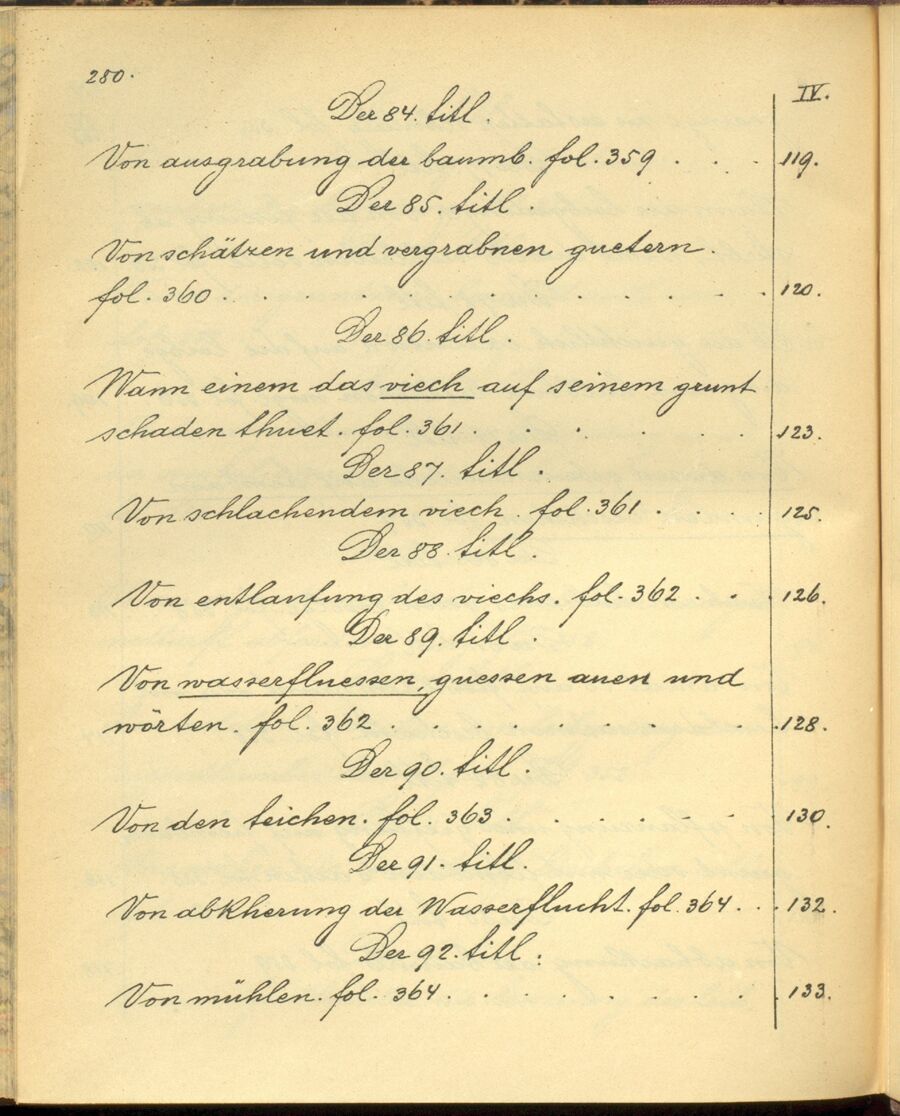 280.
IV.
Der 84. titl.
Von ausgrabung der baumb. fol. 359 . . . 119.
Der 85. titl
Von schätzen und vergrabnen guetern.
fol. 360 . . . . . . . . . 120.
Der 86. titl.
Wann einem das viech auf seinem grunt
schaden thuet. fol. 361 . . . . . 123.
Der 87. titl.
Von schlachendem viech. fol. 361 . . . . 125.
Der 88. titl.
Von entlaufung des viechs. fol. 362 . . . 126.
Der 89. titl.
Von wasserfluessen, guessen auen und
wörten. fol. 362 . . . . . . . . . 128.
Der 90. titl.
Von den teichen. fol. 363 . . . . . . 130.
Der 91. titl.
Von abkherung der Wasserflucht. fol. 364 . . . 132.
Der 92. titl.
Von mühlen. fol. 364 . . . . . . . . 133.